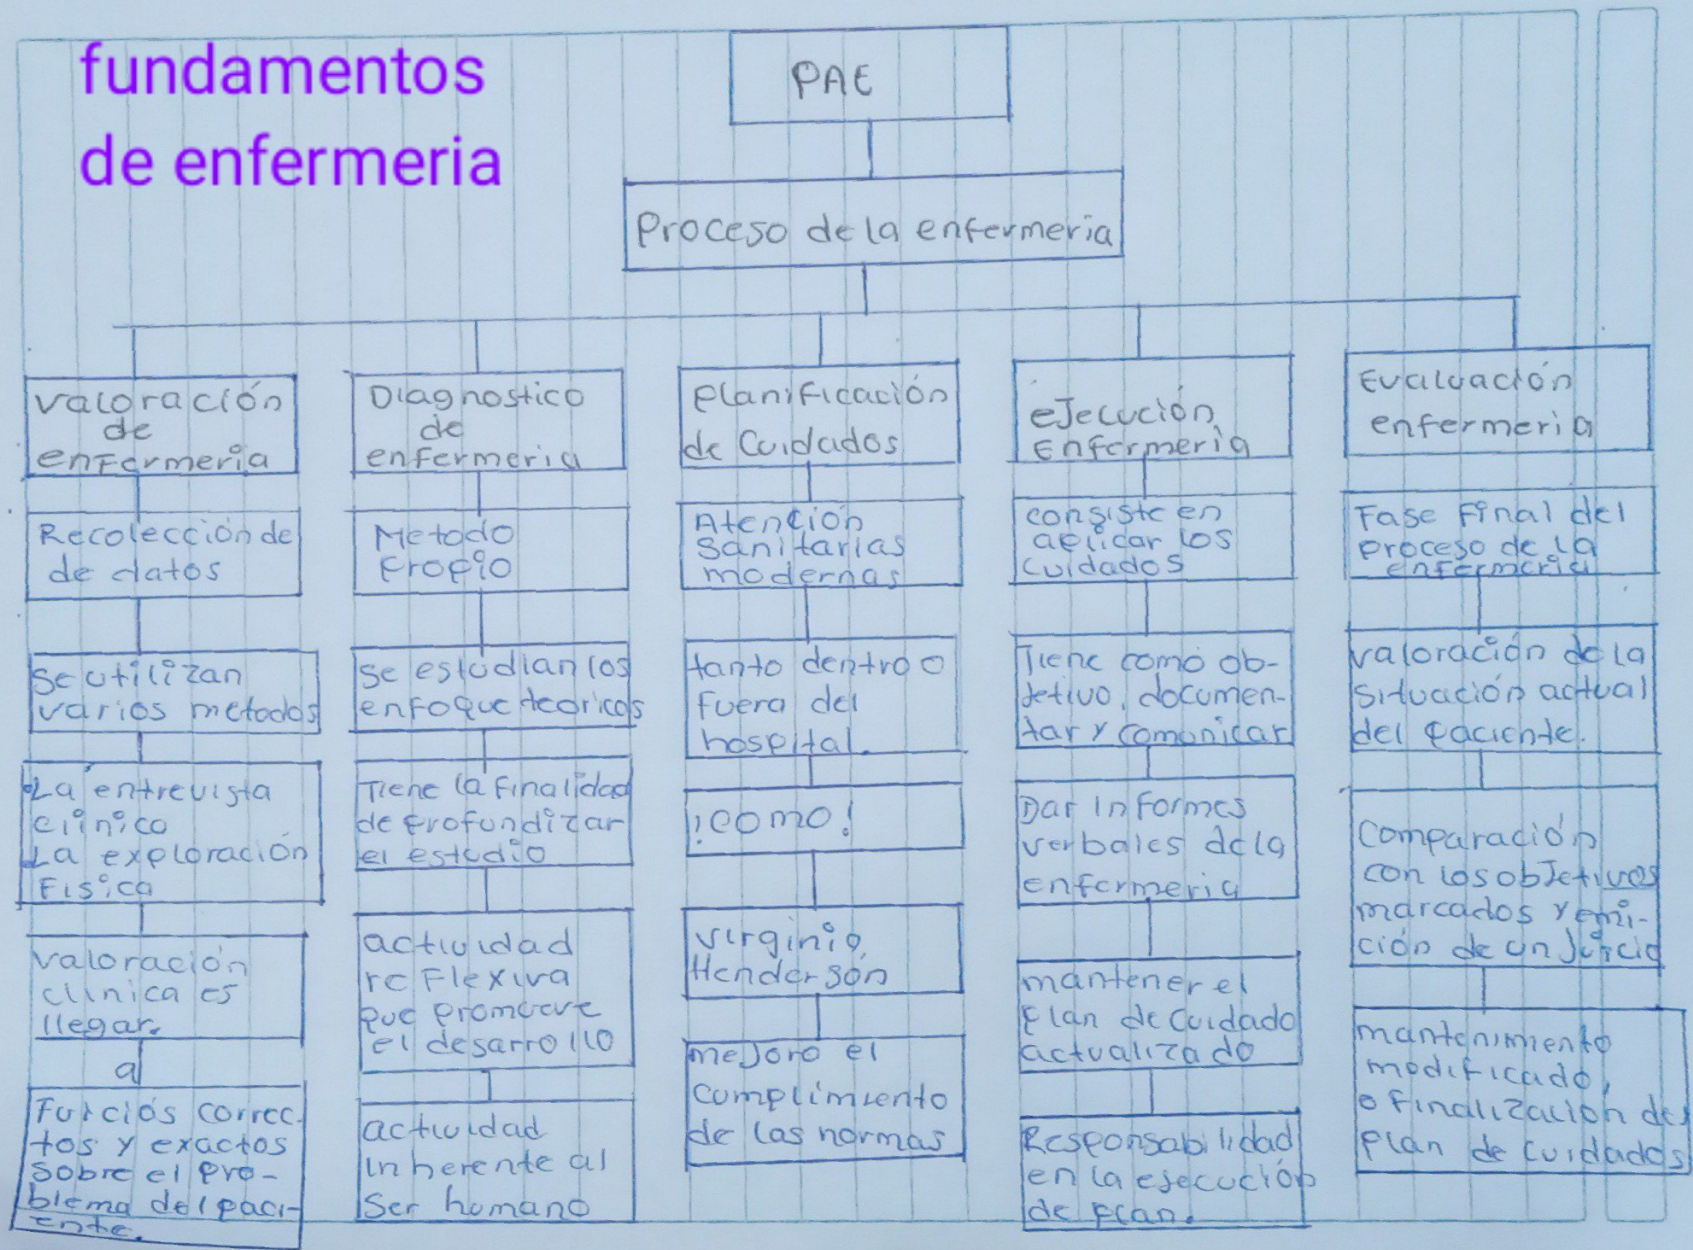 fundamentos
de enfermeria
PAE
Proceso de la enfermeria
Valoración
de
enfermeria
Recolección de
de datos
Se utilizan
varios metodos
La entrevista
clinico
La exploración
Fisica
Valoración
clinica es
llegar.
a
correc-
tos y exactos
sobre el pro-
blema del paci-
ente.
Diagnostico
de
enfermeria
Metodo
Propio
Se estudian los
enfoque teoricos
Tiene la finalidad
de profundizar
el estudio
actividad
reflexiva
que promueve
el desarrollo
actividad
inherente al
Ser humano
Planificación
de Cuidados
Atención
Sanitarias
modernas
tanto dentro o
fuera del
hospital.
¡como!
Virginia
Henderson
mejoro el
cumplimiento
de las normas
eJecución
Enfermeria
consiste en
aplicar los
cuidados
Tiene como ob-
jetivo, documen-
tar y comunicar
Dar informes
verbales de la
enfermeria
mantener el
Plan de cuidado
actualizado
Responsabilidad
en la ejecución
de plan.
Evaluación
enfermeria
Fase Final del
proceso de la
enfermeria
Valoración de la
situación actual
del paciente.
Comparación
con los objetivos
marcados y emi-
ción de un Juicio
mantenimiento
modificado,
o finalización del
Plan de cuidados